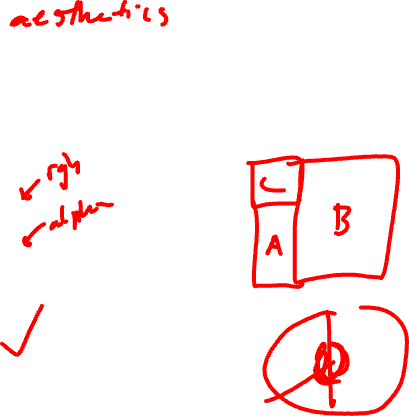 aesthetics
rgb
alpha
C
B
A